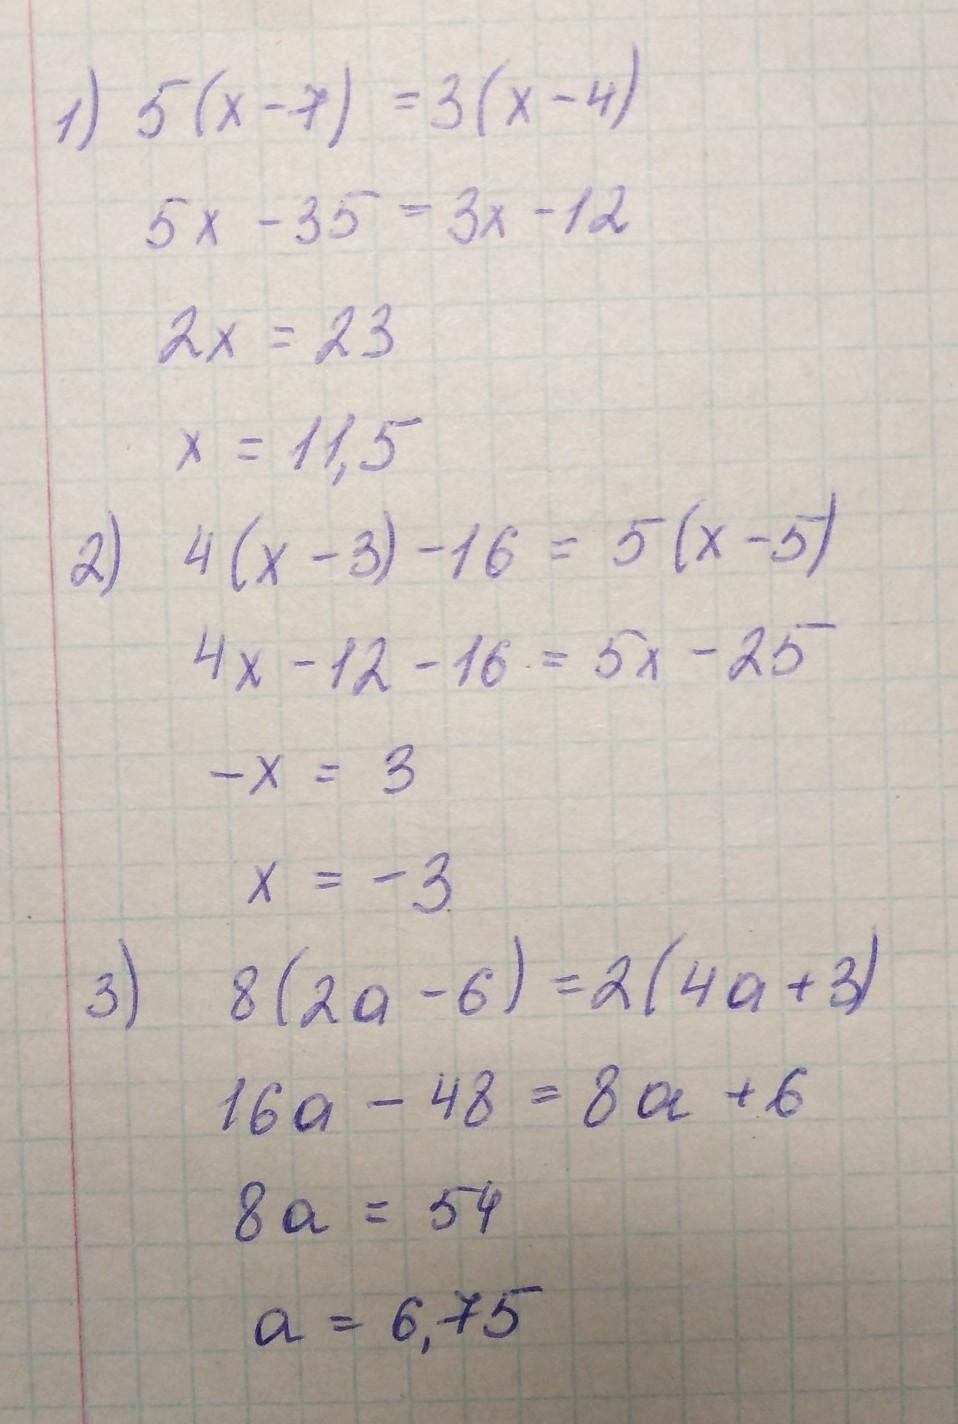 1) 5(x-7) = 3(x-4)
5x - 35 = 3x - 12
2x = 23
x = 11,5
2) 4(x-3) - 16 = 5(x-5)
4x - 12 - 16 = 5x - 25
-x = 3
x = -3
3) 8(2a-6) = 2(4a+3)
16a - 48 = 8a + 6
8a = 54
a = 6,75